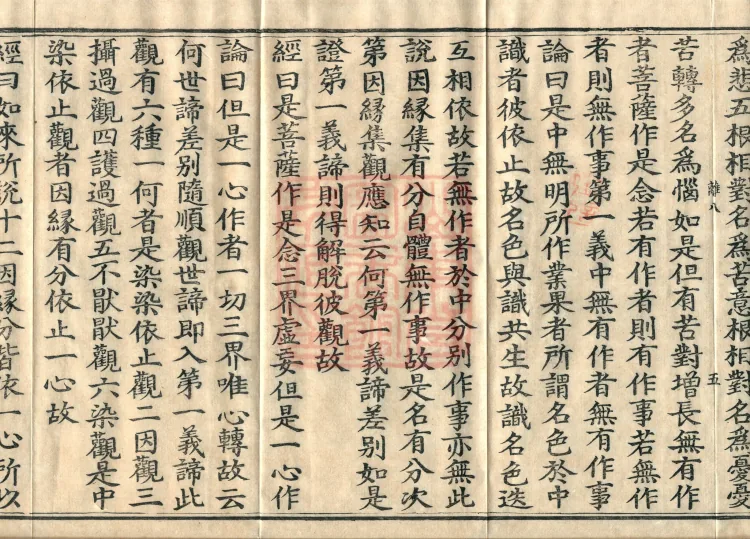 為悲五根相對名為苦意根相對名為憂憂
離八
五
苦轉多名為惱如是但有苦對增長無有作
者菩薩作是念若有作者則有作事若無作
者則無作事第一義中無有作者無有作事
論曰是中無明所作業果者所謂名色於中
識者彼依止故名色與識共生故識名色迭
互相依故若無作者於中分別作事亦無此
說因緣集有分自體無作事故是名有分次
第因緣集觀應知云何第一義諦差別如是
證第一義諦則得解脫彼觀故
經曰是菩薩作是念三界虛妄但是一心作
論曰但是一心作者一切三界唯心轉故云
何世諦差別隨順觀世諦即入第一義諦此
觀有六種一何者是染染依止觀二因觀三
攝過觀四護過觀五不猒猒觀六染觀是中
染依止觀者因緣有分依止一心故
經曰如來所說十二因緣分皆依一心所以